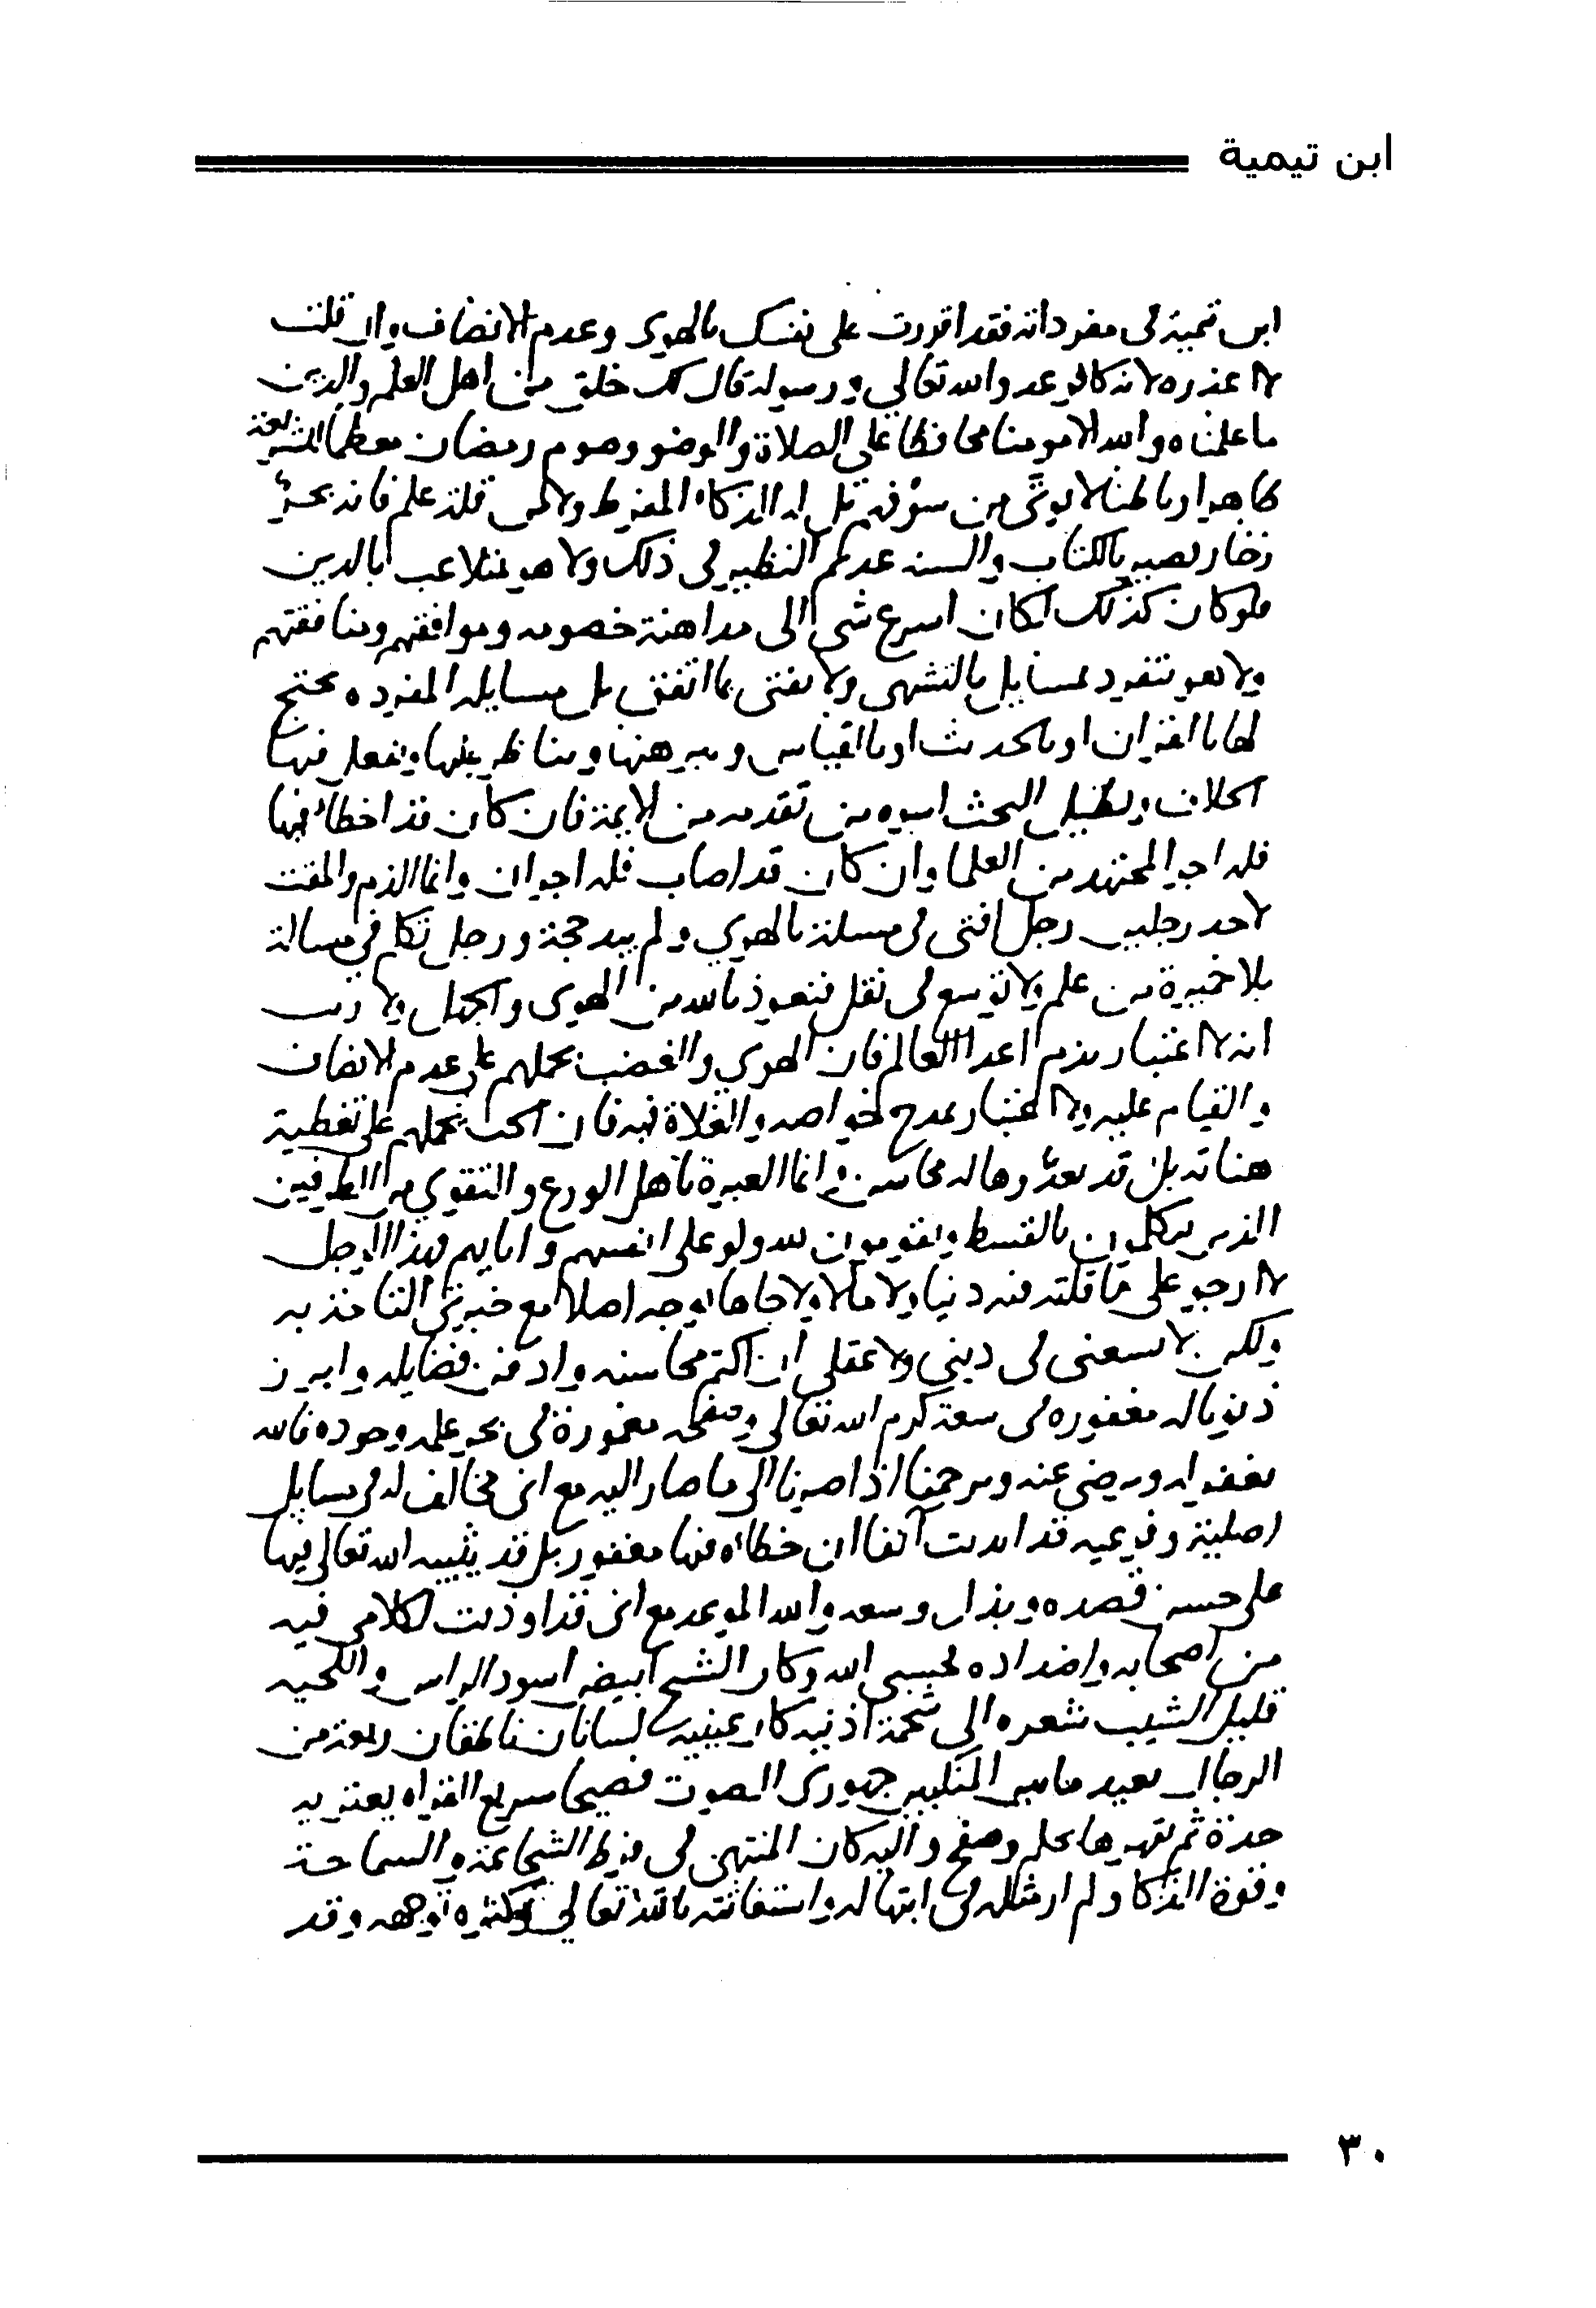 ابن تيمية
ابن تيمية في مفرداته فقد اقررت على نفسك بالهوى وعدم الانصاف وان قلت
لا اعذره لانه كافر عدو الله تعالي ورسوله قال لك خلق من اهل العلم والدين
ما علمناه والله الا مومنا محافظا على الصلاة والوضو وصوم رمضان معظما للشريعة
ظاهرا وباطنا لا يوتى من سؤ فهم بل له الذكاء المفرط ولا من قلة علم فانه بحر
زخار بصير بالكتاب والسنه عديم النظير في ذلك ولا هو بمتلاعب بالدين
فلو كان كذلك لكان اسرع شي الى مداهنة خصومه وموافقتهم ومنافقتهم
ولا هو يتفرد بمسايل بالتشهي ولا يفتي بما اتفق بل مسايله المفرده يحتج
لها بالقران او بالحديث او بالقياس ويبرهنها ويناظر عليها وينقل فيها
الخلاف ويطيل البحث اسوه من تقدمه من الايمة فان كان قد اخطا فيها
فله اجر المجتهد من العلما وان كان قد اصاب فله اجران وانما الذم والمقت
لاحد رجلين رجل افتى في مسلة بالهوي ولم يبد حجة ورجل تكلم في مسالة
بلا خميرة من علم ولا توسع في نقل فنعوذ بالله من الهوى والجهل ولا ريب
انه لا اعتبار بذم اعدا العالم فان الهوي والغضب يحملهم على عدم الانصاف
والقيام عليه ولا اعتبار بمدح خواصه والغلاة فيه فان الحب يحملهم على تغطية
هناته بل قد يعدوها له محاسن وانما العبرة باهل الورع والتقوي من الطرفين
الذين يتكلمون بالقسط ويقومون لله ولو على انفسهم وابايهم فهذا الرجل
لا ارجو على ما قلته فيه دنيا ولا مالا ولا جاها بوجه اصلا مع خبرتي التامة به
ولكن لا يسعني في ديني ولا عقلي ان اكتم محاسنه وادفن فضايله وابرز
ذنوبا له مغفوره في سعة كرم الله تعالى وصفحه مغمورة في بحر علمه وجوده فالله
يغفر له ويرضى عنه ويرحمنا اذا صرنا الى ما صار اليه مع اني مخالف له في مسايل
اصلية وفرعيه قد ابديت آنفا ان خطاه فيها مغفور بل قد يثيبه الله تعالى فيها
على حسن قصده وبذل وسعه والله الموعد مع اني قد اوذيت لكلامي فيه
من اصحابه واضداده فحسبي الله وكان الشيخ ابيض اسود الراس واللحيه
قليل الشيب شعره الى شحمة اذنيه كان عينيه لسانان ناطقان ربعة من
الرجال بعيد ما بين المنكبين جهوري الصوت فصيحا سريع القراه يعتريه
حدة ثم يقهرها بحلم وصفح واليه كان المنتهى في فرط الشجاعة والسماحة
وقوة الذكا ولم ار مثله في ابتهاله واستغاثته بالله تعالي وكثره توجهه وقد
٣٠